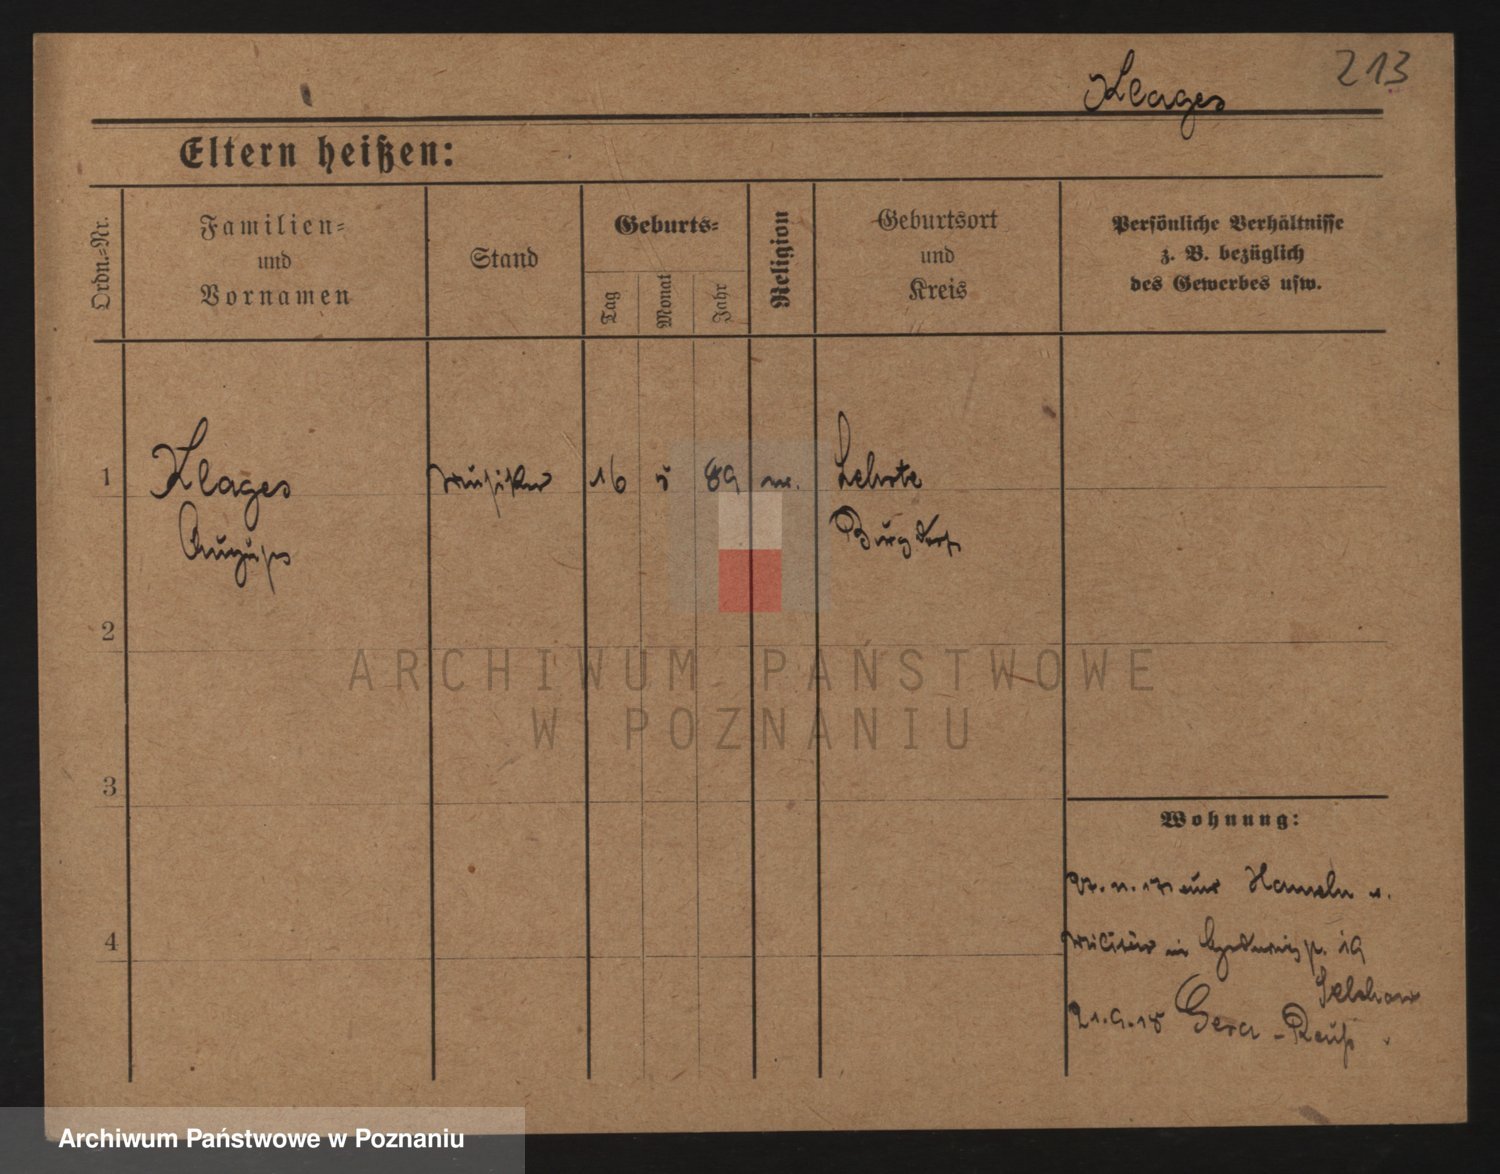 213
Klages
Eltern heißen:
Ordn.=Nr.
Familien=
und
Vornamen
Stand
Geburts=
Tag
Monat
Jahr
Religion
Geburtsort
und
Kreis
Persönliche Verhältnisse
z. B. bezüglich
des Gewerbes usw.
1
Klages
August
Musiker
16
5
89
Lehrte
Burgdorf
2
ARCHIWUM PAŃSTWOWE
W POZNANIU
3
Wohnung:
aus Hameln
4
Militär in 19
21.9.15 Gera - Reuß
Archiwum Państwowe w Poznaniu